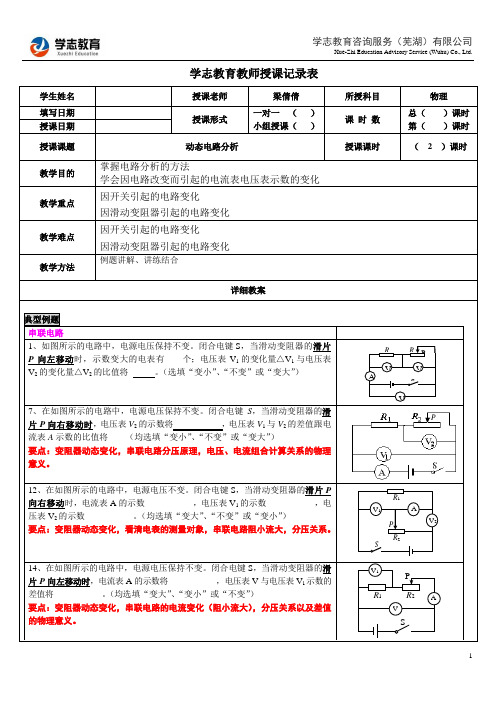 学志教育
Xueshi Education
学志教育咨询服务（芜湖）有限公司
Xue-Zhi Education Advisory Service (Wuhu) Co., Ltd.
学志教育教师授课记录表
学生姓名 授课老师 梁倩倩 所授科目 物理
填写日期 授课形式 一对一 （ ） 课 时 数 总（ ）课时
授课日期 小组授课（ ） 第（ ）课时
授课课题 动态电路分析 授课课时 （ 2 ）课时
教学目的 掌握电路分析的方法
学会因电路改变而引起的电流表电压表示数的变化
教学重点 因开关引起的电路变化
因滑动变阻器引起的电路变化
教学难点 因开关引起的电路变化
因滑动变阻器引起的电路变化
教学方法 例题讲解、讲练结合
详细教案
典型例题
串联电路
1、如图所示的电路中，电源电压保持不变。闭合电键 S，当滑动变阻器的滑片
P 向左移动时，示数变大的电表有 个；电压表 V₁的变化量△V₁与电压表
V₂的变化量△V₂的比值将 。（选填“变小”、“不变”或“变大”）
7、在如图所示的电路中，电源电压保持不变。闭合电键 S，当滑动变阻器的滑
片 P 向右移动时，电压表 V₂的示数将 ，电压表 V₁与 V₂的差值跟电
流表 A 示数的比值将 （均选填“变小”、“不变”或“变大”）
要点：变阻器动态变化，串联电路分压原理，电压、电流组合计算关系的物理
意义。
R₁ R₂ P
V₂
V₁
A S
12、在如图所示的电路中，电源电压不变。闭合电键 S，当滑动变阻器的滑片 P
向右移动时，电流表 A 的示数 ，电压表 V₁的示数 ，电
压表 V₂的示数 。（均选填“变大”、“不变”或“变小”）
要点：变阻器动态变化，看清电表的测量对象，串联电路阻小流大，分压关系。
R₁
V₁ A V₂
P
R₂
S
14、在如图所示的电路中，电源电压保持不变。闭合电键 S，当滑动变阻器的滑
片 P 向左移动时，电流表 A 的示数将 ，电压表 V 与电压表 V₁示数的
差值将 。（均选填“变大”、“变小”或“不变”）
要点：变阻器动态变化，串联电路的电流变化（阻小流大），分压关系以及差值
的物理意义。
V₁ P
R₁ R₂ A
V
S
1